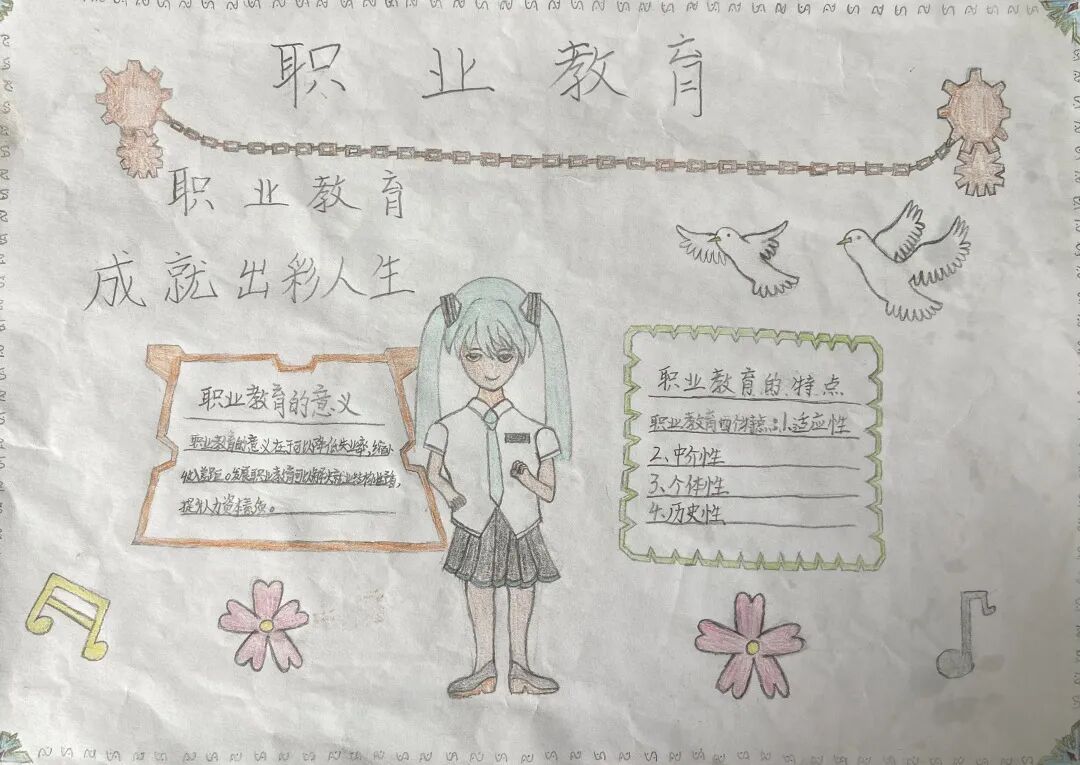 职业教育
职业教育
成就出彩人生
职业教育的意义
职业教育的意义在于可以降低失业率,缩小
收入差距。发展职业教育可以解决就业结构
提升人力资本
职业教育的特点
职业教育四个特点:1、适应性
2、中介性
3、个体性
4、历史性